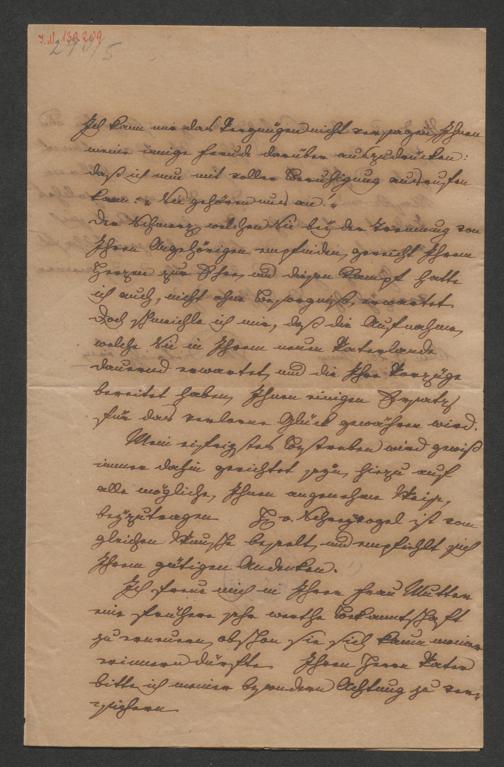 I.N. 130.209
290/5
Ich kann mir das Vergnügen nicht versagen, Ihnen
meine innige Freude darüber auszudrücken:
daß ich nun mit voller Beruhigung ausrufen
kann: „Sie gehören uns an“.
Der Schmerz, welchen Sie bei der Trennung von
Ihren Angehörigen empfinden, gereicht Ihrem
Herzen zur Ehre, und diesen Kampf hatte
ich auch, nicht ohne Besorgniß, erwartet.
Doch schmeichle ich mir, daß die Aufnahme,
welche Sie in Ihrem neuen Vaterlande
dauernd erwartet, und die Ihre Vorzüge
bereitet haben, Ihnen einigen Ersatz
für das verlorne Glück gewähren wird.
Mein eifrigstes Bestreben wird gewiß
immer dahin gerichtet seyn, hiezu auf
alle mögliche, Ihnen angenehme Weise,
beyzutragen. H. v. Schreyvogel ist vom
gleichen Wunsche beseelt, und empfiehlt sich
Ihrem gütigen Andenken.
Ich freue mich in Ihrer Frau Mutter
eine frühere sehr werthe Bekanntschaft
zu erneuern, obschon sie sich kaum meiner
erinnern dürfte. Ihren Herrn Vater
bitte ich meiner besondern Achtung zu ver-
sichern